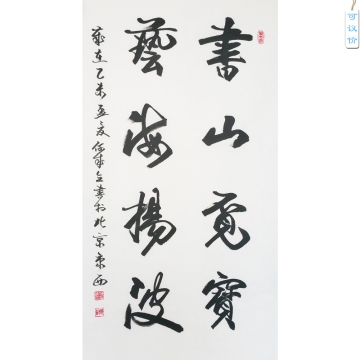 書山覓寶
藝海揚波
歲在乙未孟夏
書於北京京西
可议价